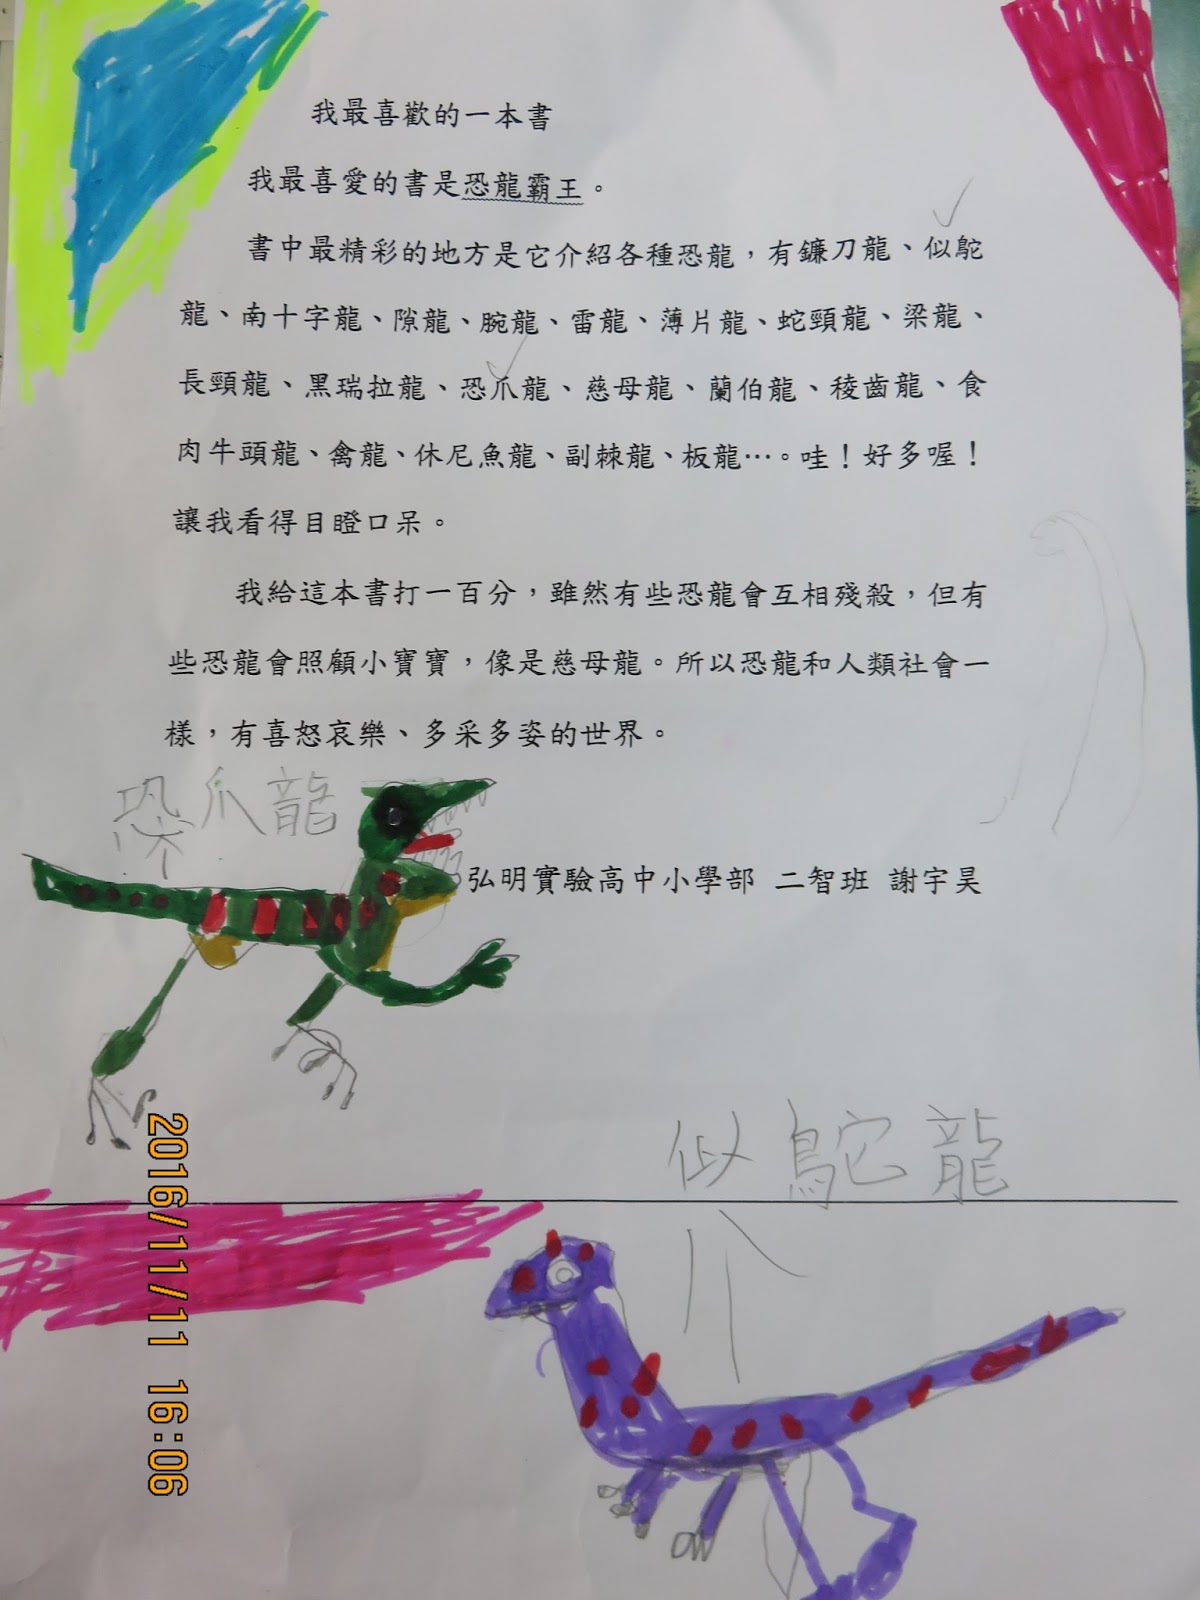 我最喜歡的一本書
我最喜愛的書是恐龍霸王。
書中最精彩的地方是它介紹各種恐龍，有鐮刀龍、似鴕
龍、南十字龍、隙龍、腕龍、雷龍、薄片龍、蛇頸龍、梁龍、
長頸龍、黑瑞拉龍、恐爪龍、慈母龍、蘭伯龍、稜齒龍、食
肉牛頭龍、禽龍、休尼魚龍、副棘龍、板龍…。哇！好多喔！
讓我看得目瞪口呆。
我給這本書打一百分，雖然有些恐龍會互相殘殺，但有
些恐龍會照顧小寶寶，像是慈母龍。所以恐龍和人類社會一
樣，有喜怒哀樂、多采多姿的世界。
恐爪龍
弘明實驗高中小學部 二智班 謝宇昊
似鴕龍
2016/11/11 16:06